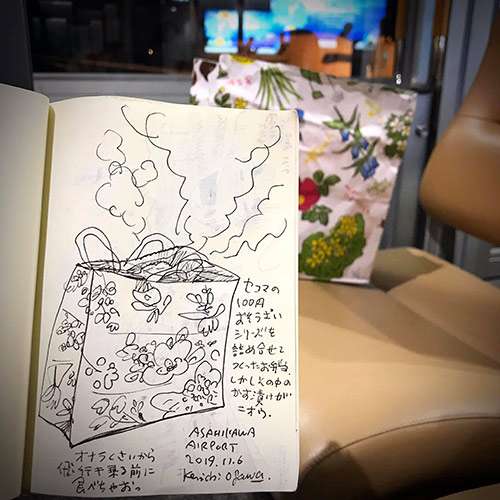 セコマの
100円
おそうざい
シリーズを
詰め合せて
つくったお弁当。
しかしその中の
かす漬けが
ニオウ。
ASAHIKAWA
AIRPORT
2019.11.6
Kenichi Ogawa.
オナラくさいから
飛行キ乗る前に
食べちゃおっ